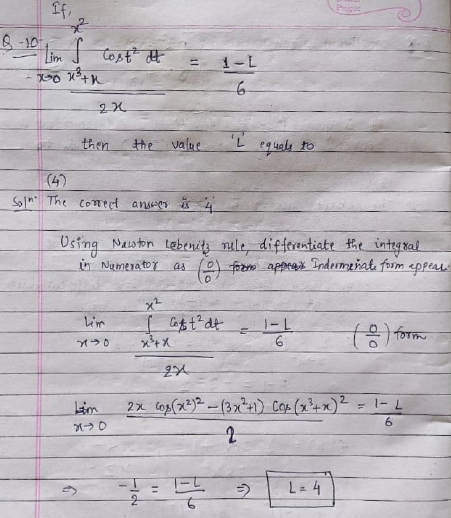 If,
Q-10 Lim x→0 ∫ x³+x x² Cost² dt / 2x = 1-L / 6
then the value 'L' equals to
(4)
Solⁿ: The correct answer is 4
Using Newton Lebenitz rule, differentiate the integral
in Numerator as (0/0) Indermenate form appear
Lim x→0 ∫ x³+x x² Cos t² dt / 2x = 1-L / 6 (0/0) form
Lim x→0 2x cos(x²)² - (3x²+1) Cos (x³+x)² / 2 = 1-L / 6
⇒ -1/2 = 1-L / 6 ⇒ L = 4